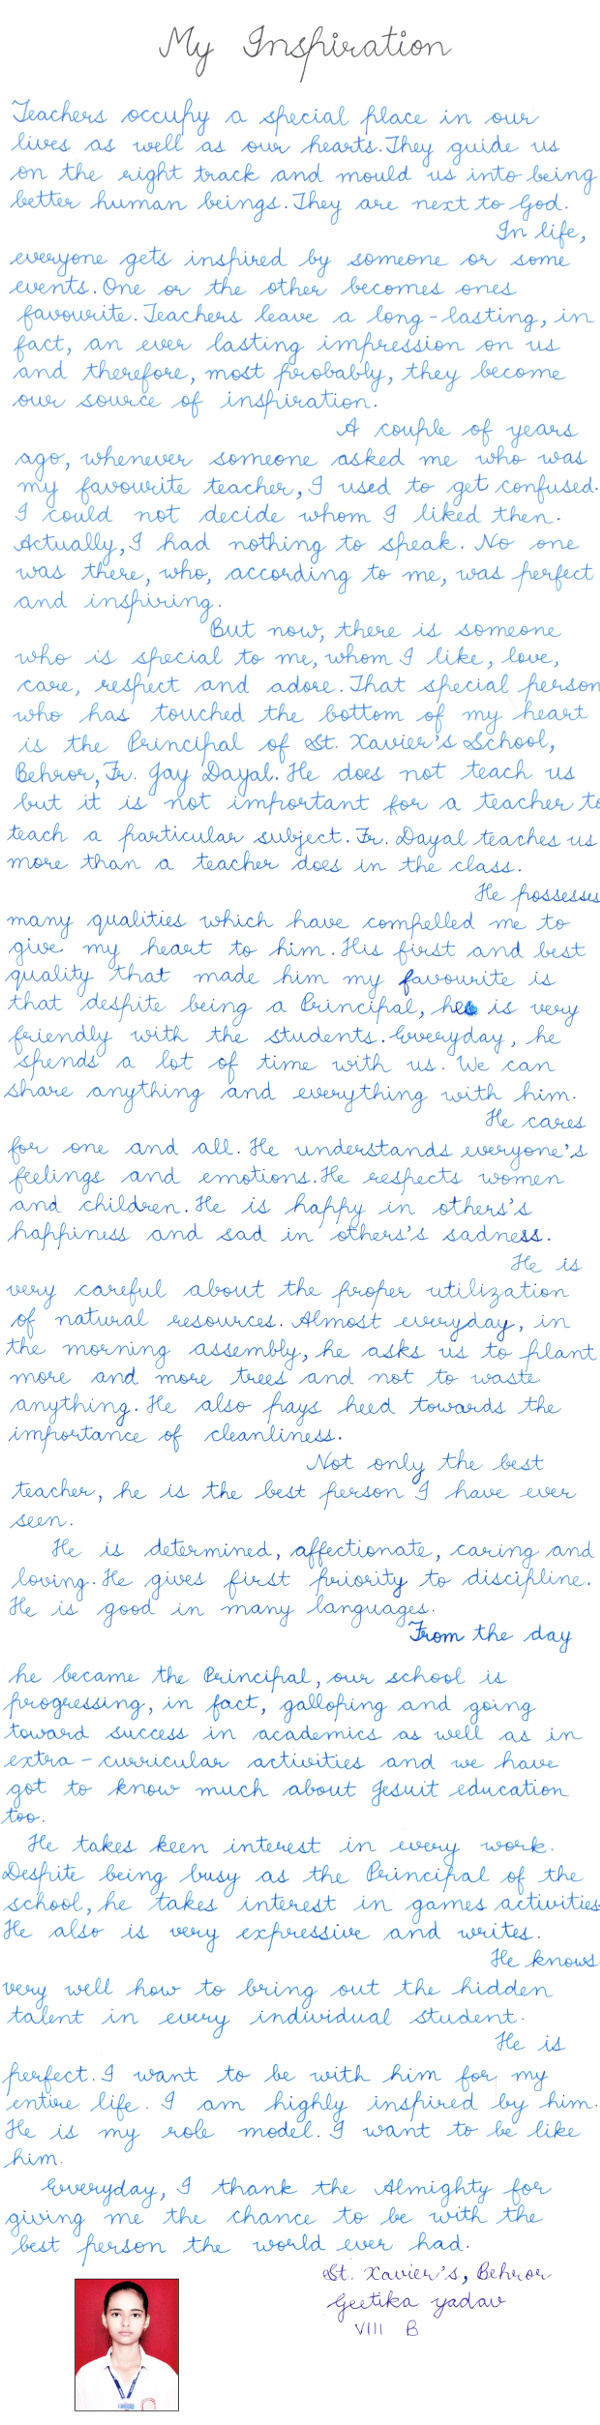 My Inspiration
Teachers occupy a special place in our
lives as well as our hearts. They guide us
on the right track and mould us into being
better human beings. They are next to God.
In life,
everyone gets inspired by someone or some
events. One or the other becomes ones
favourite. Teachers leave a long-lasting, in
fact, an ever lasting impression on us
and therefore, most probably, they become
our source of inspiration.
A couple of years
ago, whenever someone asked me who was
my favourite teacher, I used to get confused.
I could not decide whom I liked then.
Actually, I had nothing to speak. No one
was there, who, according to me, was perfect
and inspiring.
But now, there is someone
who is special to me, whom I like, love,
care, respect and adore. That special person
who has touched the bottom of my heart
is the Principal of St. Xavier's School,
Behror, Fr. Jay Dayal. He does not teach us
but it is not important for a teacher to
teach a particular subject. Fr. Dayal teaches us
more than a teacher does in the class.
He possesses
many qualities which have compelled me to
give my heart to him. His first and best
quality that made him my favourite is
that despite being a Principal, he is very
friendly with the students. Everyday, he
spends a lot of time with us. We can
share anything and everything with him.
He cares
for one and all. He understands everyone's
feelings and emotions. He respects women
and children. He is happy in others's
happiness and sad in others's sadness.
He is
very careful about the proper utilization
of natural resources. Almost everyday, in
the morning assembly, he asks us to plant
more and more trees and not to waste
anything. He also pays heed towards the
importance of cleanliness.
Not only the best
teacher, he is the best person I have ever
seen.
He is determined, affectionate, caring and
loving. He gives first priority to discipline.
He is good in many languages.
From the day
he became the Principal, our school is
progressing, in fact, galloping and going
toward success in academics as well as in
extra-curricular activities and we have
got to know much about Jesuit education
too.
He takes keen interest in every work.
Despite being busy as the Principal of the
school, he takes interest in games activities
He also is very expressive and writes.
He knows
very well how to bring out the hidden
talent in every individual student.
He is
perfect. I want to be with him for my
entire life. I am highly inspired by him.
He is my role model. I want to be like
him.
Everyday, I thank the Almighty for
giving me the chance to be with the
best person the world ever had.
St. Xavier's, Behror
Geetika Yadav
VIII B